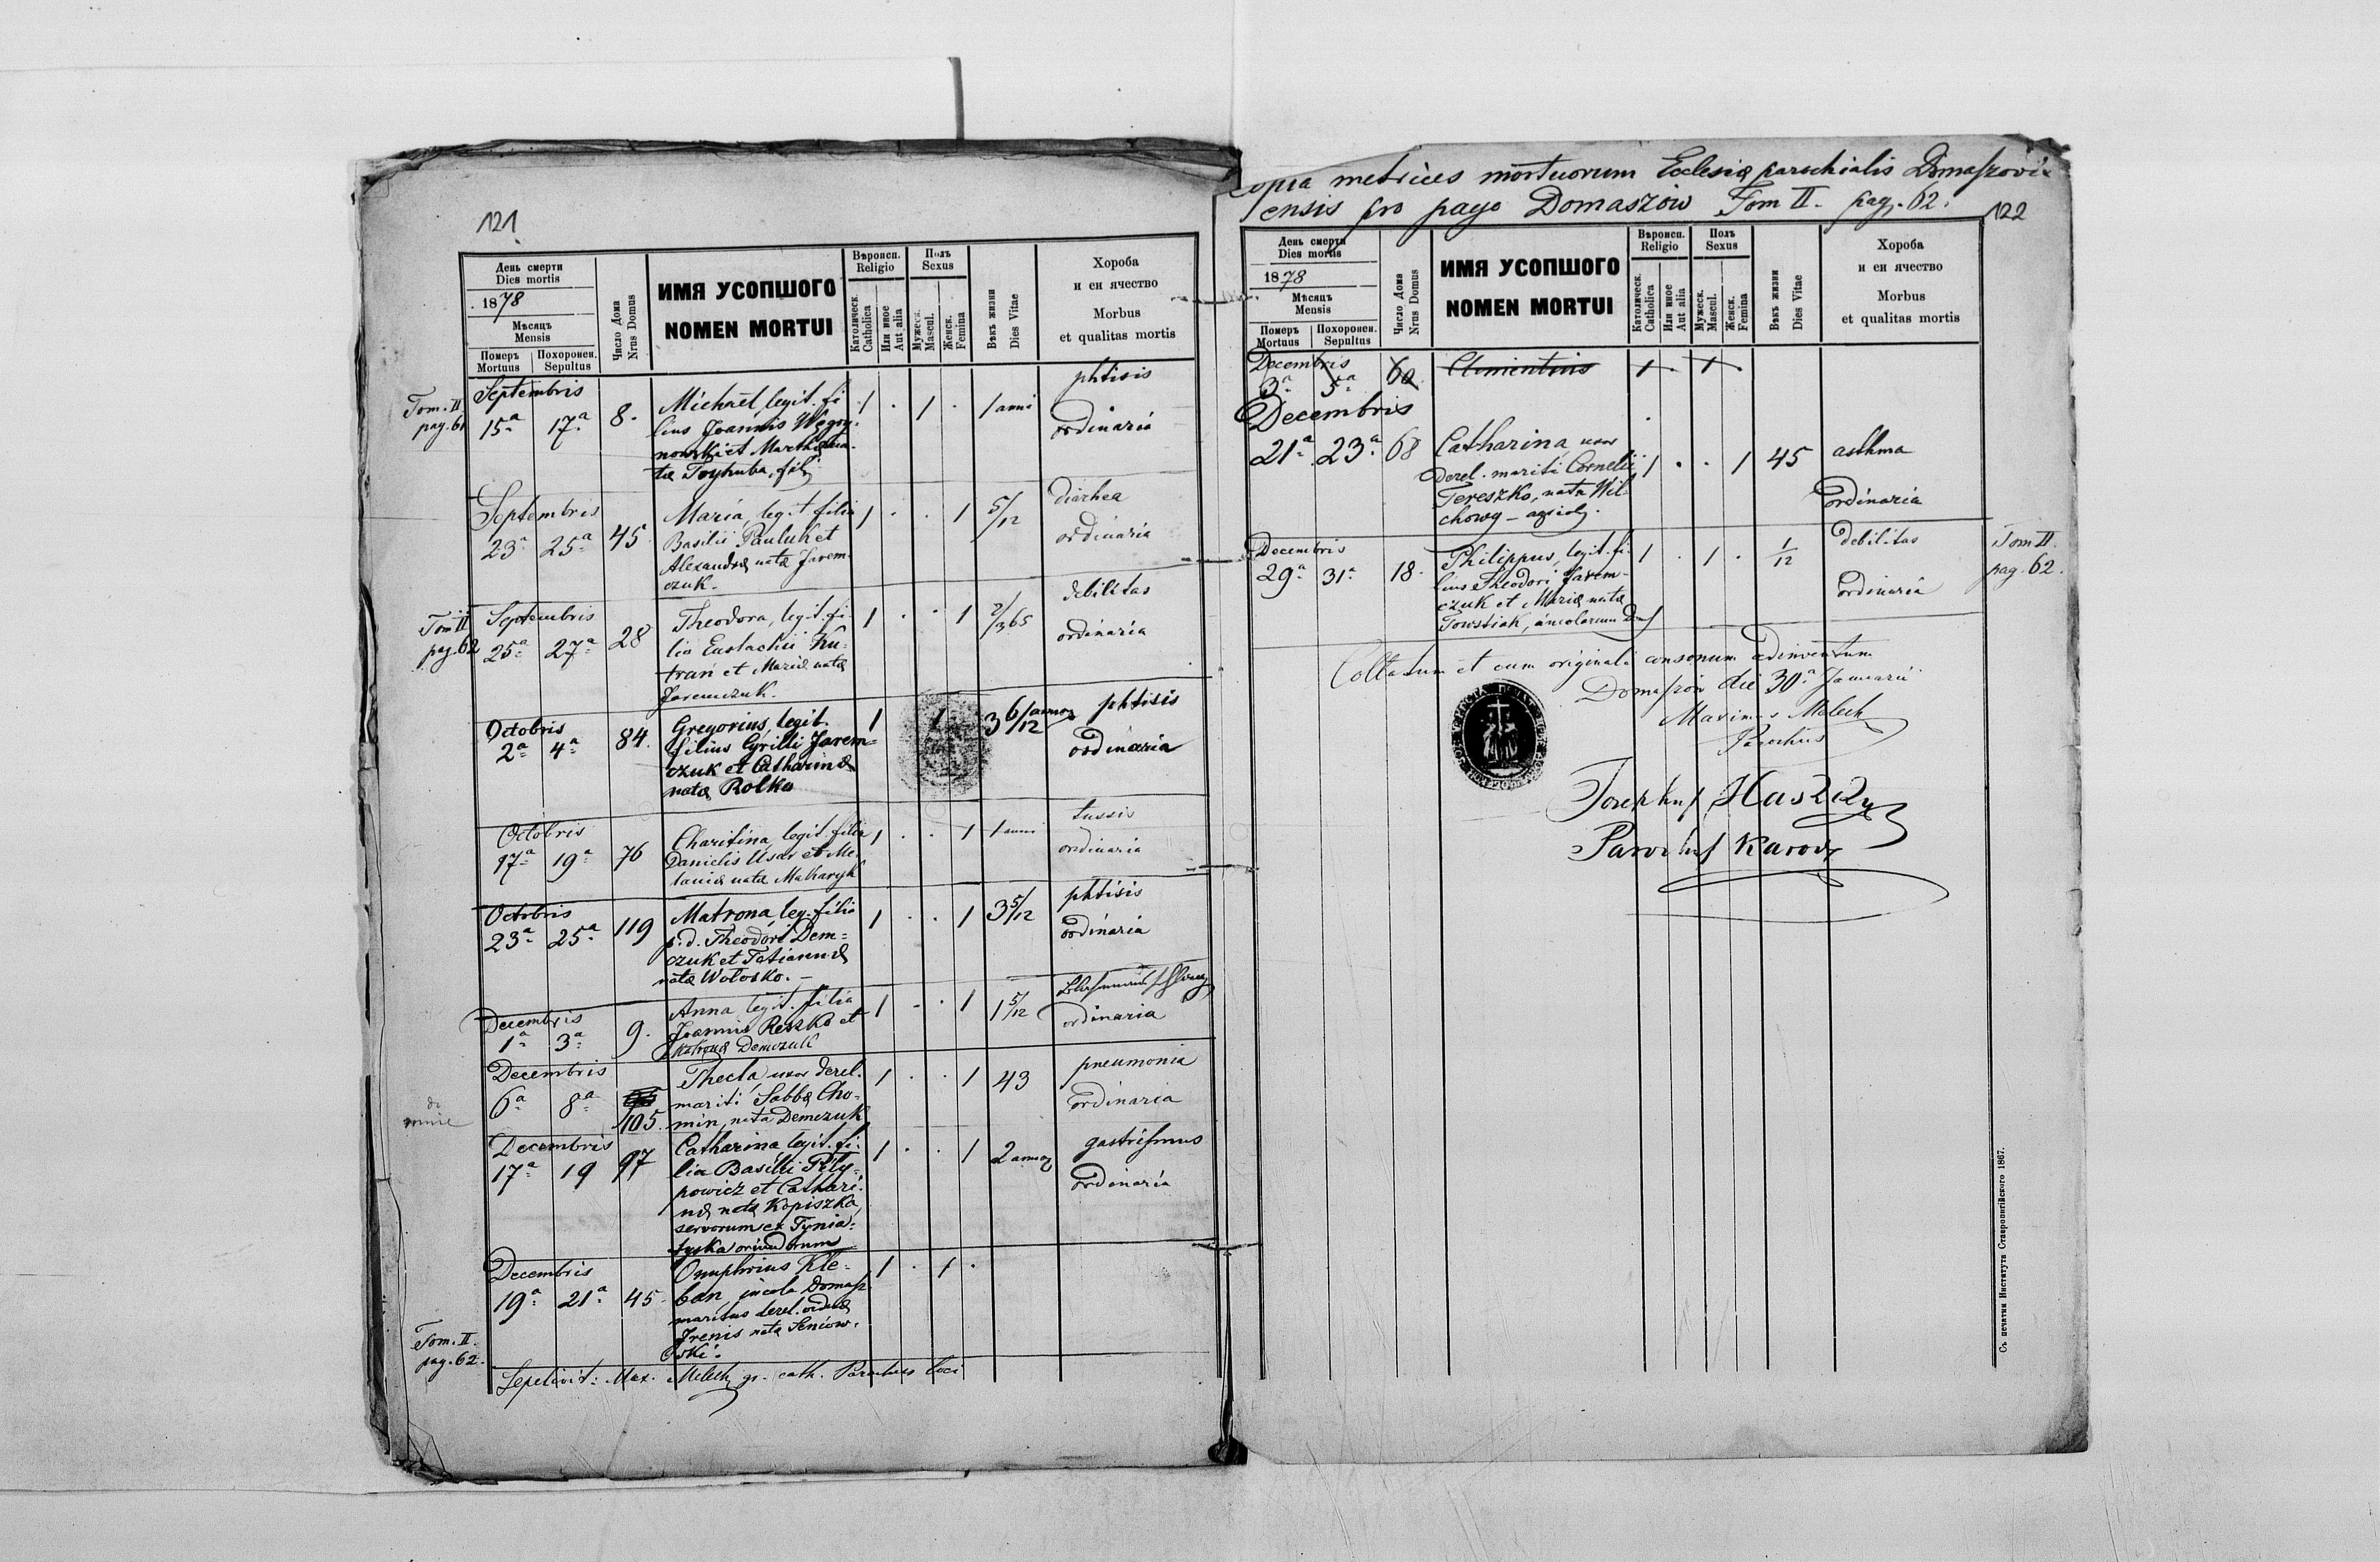 121
День смерти
Dies mortis
1878
Мѣсяцъ
Mensis
Померъ
Mortuus
Похоронен.
Sepultus
Число Дома
Nrus Domus
ИМЯ УСОПШОГО
NOMEN MORTUI
Вѣроисп.
Religio
Католическ.
Catholica
Или иное
Aut alia
Полъ
Sexus
Мужеск.
Mascul.
Женск.
Femina
Вѣкъ жизни
Dies Vitae
Хороба
и еи ячество
Morbus
et qualitas mortis
Tom. II
pag. 61
Septembris
15a 17a 8.
Michael, legit. fi
lius Joannis Węgry-
nowski et Marthæ na-
tæ
1 . 1 . 1 anni
phtisis
ordinaria
Septembris
23a 25a 45
Maria, legit. filia
Basilii Pauluk et
Alexandræ natæ Jarem-
czuk.
1 . . 1 5/12
diarhea
ordinaria
Tom II
pag. 62
Septembris
25a 27a 28
Theodora, legit. fi-
lia Eustachii Ku-
tran et Mariæ natæ
Jaremczuk.
1 . . 1 2/365
debilitas
ordinaria
Octobris
2a 4a 84.
Gregorius, legit.
filius Cyrilli Jarem=
czuk et Catharinæ
natæ Rolko
1 1 3 6/12 annos
phtisis
ordinaria
Octobris
17a 19a 76
Charitina, legit. filia
Danielis Usar et Me-
laniæ natæ Makaryk
1 . . 1 1 anni
tussis
ordinaria
Octobris
23a 25a 119
Matrona, leg. filia
p. d. Theodori Dem=
czuk et Tatiannæ
natæ Wołosko. –
1 . . 1 3 5/12
phtisis
ordinaria
Decembris
1a 3a 9.
Anna legit. filia
Joannis Reszko et
Matronæ Demczuk
1 . . 1 1 5/12
ordinaria
Decembris
6a 8a 105.
Thecla, uxor derel.
mariti Sabbæ Cho-
min, nata Demczuk
1 . . 1 43
pneumonia
ordinaria
Decembris
17a 19 97
Catharina, legit. fi-
lia Basilii Pyly-
powicz et Cathari-
næ natæ Kopiszka,
servorum ex Tynia-
tyska oriundorum
1 . . 1 2 annos
gastrismus
ordinaria
Decembris
19a 21a 45.
Onuphrius Kle-
ban, incola Domasz.
maritus derel.
Irenis natæ Seniow-
ski.
1 . 1 .
Tom. II.
pag. 62.
Sepelivit: Max. Melech gr. cath. Parochus loci
Copia metrices mortuorum Ecclesiæ parochialis Domaszovi-
ensis pro pago Domaszów Tom II. pag. 62.
122
День смерти
Dies mortis
1878
Мѣсяцъ
Mensis
Померъ
Mortuus
Похоронен.
Sepultus
Число Дома
Nrus Domus
ИМЯ УСОПШОГО
NOMEN MORTUI
Вѣроисп.
Religio
Католическ.
Catholica
Или иное
Aut alia
Полъ
Sexus
Мужеск.
Mascul.
Женск.
Femina
Вѣкъ жизни
Dies Vitae
Хороба
и еи ячество
Morbus
et qualitas mortis
Decembris
3a 5a 60
Clementius
1 . 1 .
Decembris
21a 23a 68
Catharina, uxor
derel. mariti Cornelii
Tereszko, nata Wil-
chowy –
1 . . 1 45
asthma
ordinaria
Decembris
29a 31a 18.
Philippus, legit. fi-
lius Theodori Jarem-
czuk et Mariæ natæ
Towstiak, incolarum Dom
1 . 1 . 1/12
debilitas
ordinaria
Tom II.
pag. 62.
Collatum et cum originali consonum adinventum
Domaszów die 30a Januarii
Maximus Melech
Parochus
Josephus
Parochus Karow
Съ печатни Института Ставропигійского 1867.